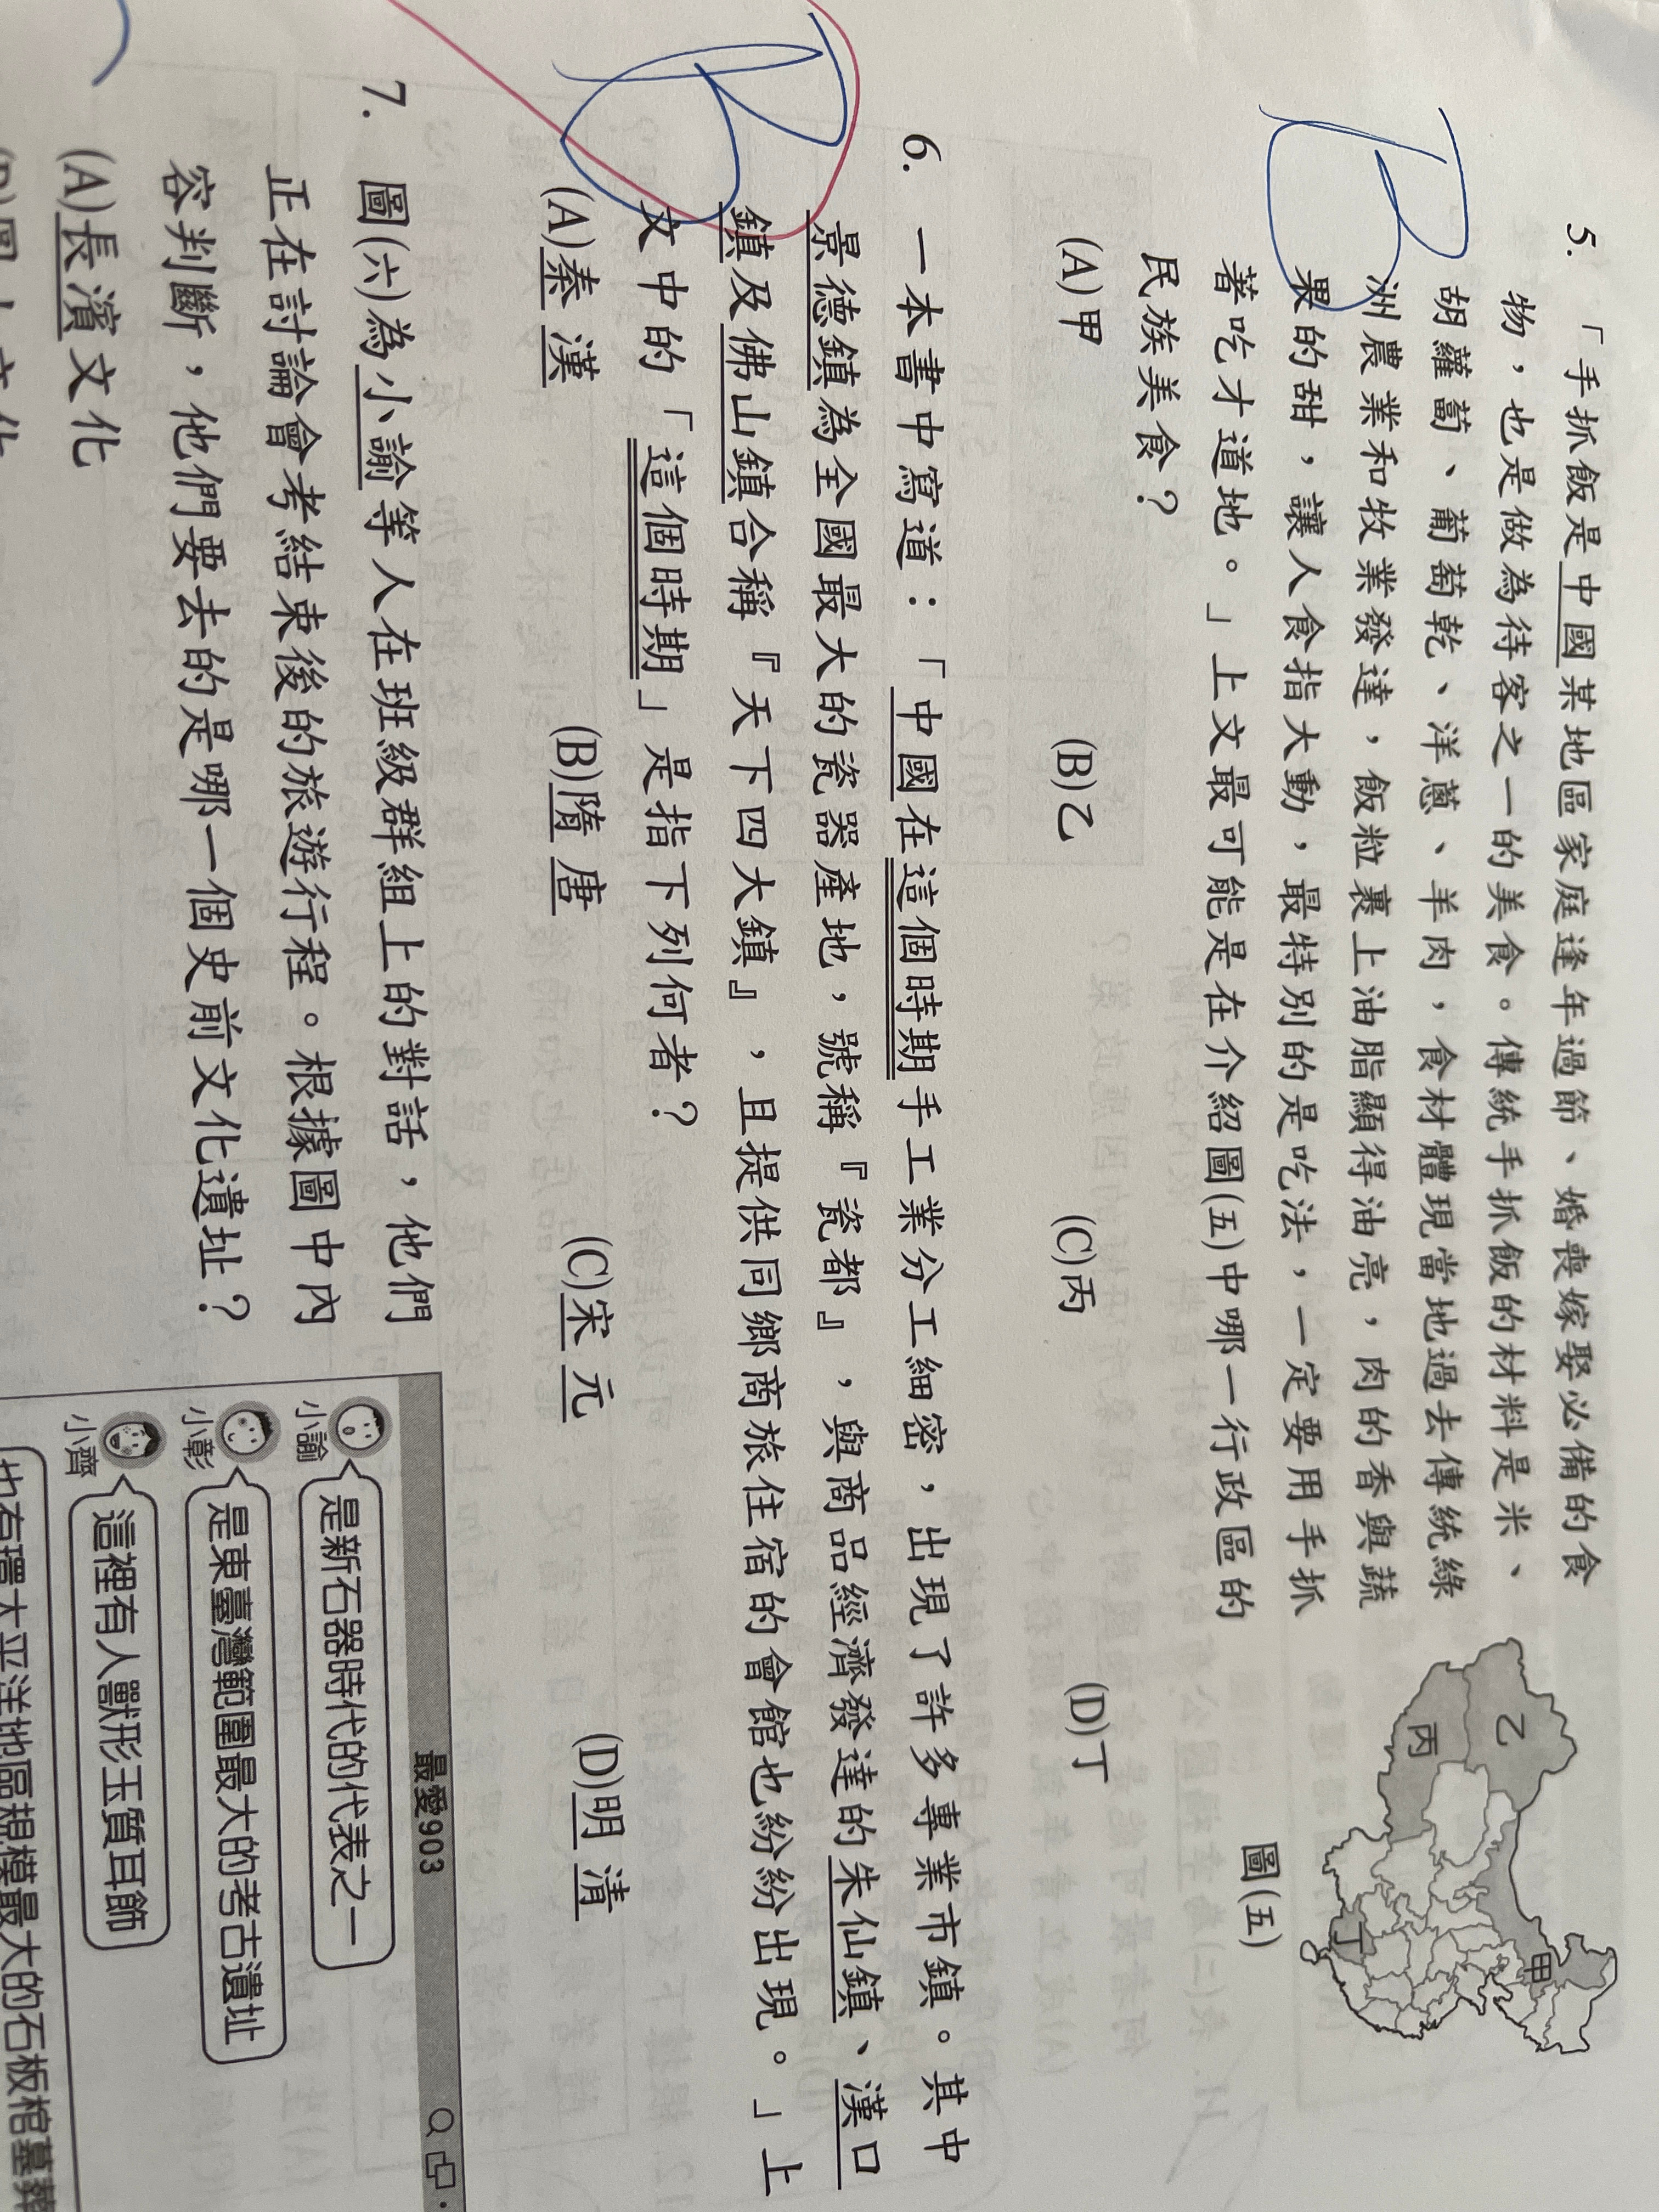 B
5. 「手抓飯是中國某地區家庭逢年過節、婚喪嫁娶必備的食
物,也是做為待客之一的美食。傳統手抓飯的材料是米、
胡蘿蔔、葡萄乾、洋蔥、羊肉,食材體現當地過去傳統綠
洲農業和牧業發達,飯粒裹上油脂顯得油亮,肉的香與蔬
果的甜,讓人食指大動,最特別的是吃法,一定要用手抓
著吃才道地。」上文最可能是在介紹圖(五)中哪一行政區的
民族美食?
(A)甲 (B)乙 (C)丙 (D)丁
甲
乙
丙
丁
圖(五)
B
6. 一本書中寫道:「中國在這個時期手工業分工細密,出現了許多專業市鎮。其中
景德鎮為全國最大的瓷器產地,號稱『瓷都』,與商品經濟發達的朱仙鎮、漢口
鎮及佛山鎮合稱『天下四大鎮』,且提供同鄉商旅住宿的會館也紛紛出現。」上
文中的「這個時期」是指下列何者?
(A)秦 漢 (B)隋 唐 (C)宋 元 (D)明 清
7. 圖(六)為小諭等人在班級群組上的對話,他們
正在討論會考結束後的旅遊行程。根據圖中內
容判斷,他們要去的是哪一個史前文化遺址?
(A)長濱文化
最愛903
小諭
是新石器時代的代表之一
小彰
是東臺灣範圍最大的考古遺址
小齊
這裡有人獸形玉質耳飾
也有環太平洋地區規模最大的石板棺墓葬